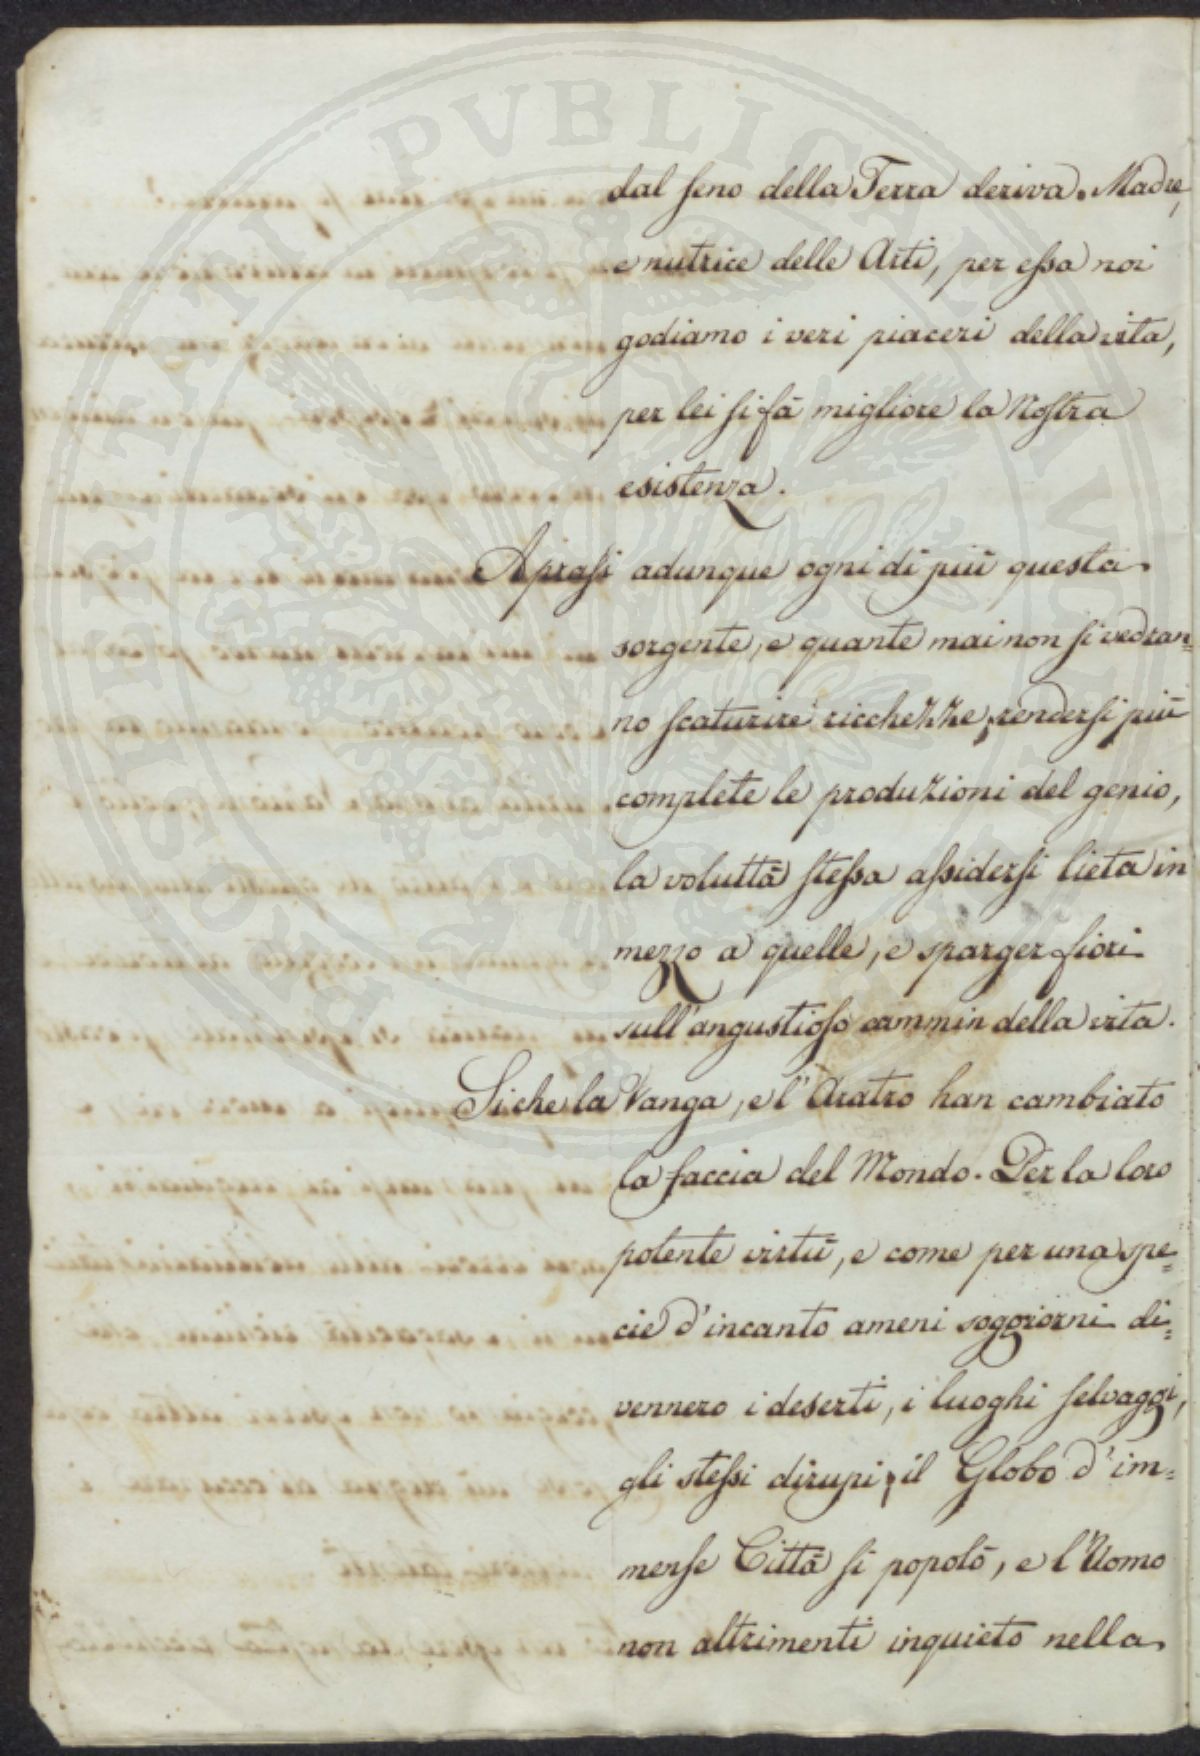 dal seno della Terra deriva. Madre,
e nutrice delle Arti, per essa noi
godiamo i veri piaceri della vita,
per lei si fà migliore la Nostra
esistenza.
Aprasi adunque ogni dì più questa
sorgente, e quante mai non si vedran=
no scaturire ricchezze, rendersi più
complete le produzioni del genio,
la voluttà stessa assidersi lieta in
mezzo a quelle, e sparger fiori
sull'angustioso cammin della vita.
Siche la Vanga, e l'Aratro han cambiato
la faccia del Mondo. Per la loro
potente virtù, e come per una spe=
cie d'incanto ameni soggiorni di=
vennero i deserti, i luoghi selvaggi,
gli stessi dirupi; il Globo d'im=
mense Città si popolò, e l'Uomo
non altrimenti inquieto nella
PROSPERITATI PUBLICAE AUGENDAE